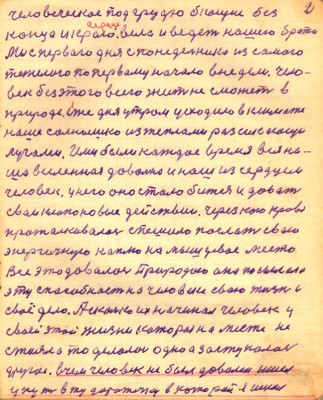 2
человеческое под грудью бьющие без
сердце
конца и края, вело и ведет нашего брата
Мы с первого дня с понедельника из самого
тяжелого по первому началу в недели. Чело-
век без этого всего жить не сможет в
природе. Уже дня утром уходило в климате
наше солнышко из теплами раз сия ющи
лучами. Ими были каждое время вся на-
ша вселенная довольна и наш из сердцем
человек. у него оно стало бится и давать
свои клапоновые действии. через кою кровь
проталкивалась спешило послать свою
энергичную каплю на мышцевое место.
Все это давалось Природою она посылала
эту способность на человеке свою жизнь и
своё дело. А сколько их начинал человек у
своей этой жизни которая на месте не
стояла то делалось одно а заступалось
другое. В чем человек не был доволен шел
у путь в ту дорожку в которой я шел